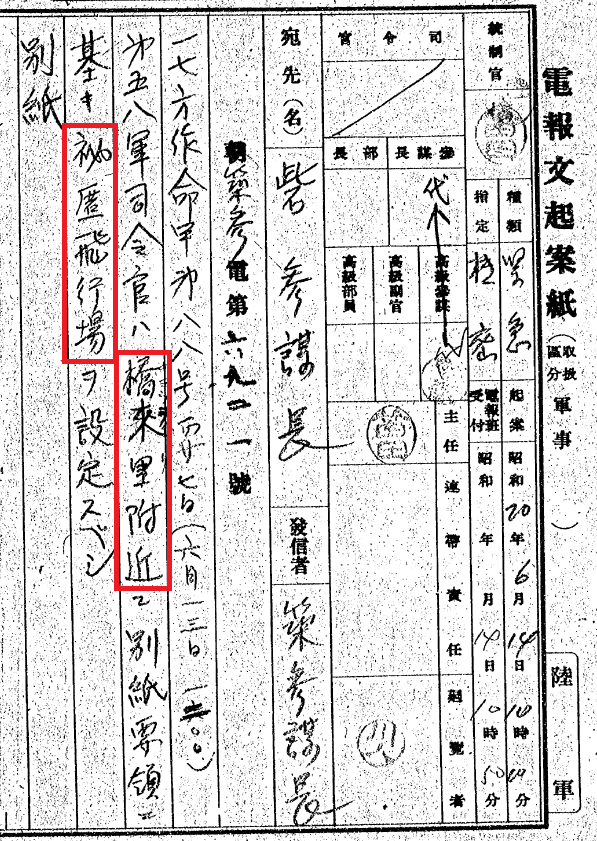 電報文起案紙
(取扱区分 軍事 )
陸軍
種類 緊急
起案 昭和20年6月14日10時 分
指定
電報班受付 昭和 年 月14日10時50分
統制官
司令官
參謀長
部長
代
高級參謀
高級副官
高級部員
主任
連帶責任
廻覽者
宛先(名) 砦參謀長
發信者 築參謀長
電第六九二一號
一七方作命甲第八八号 (六月一三日
第五八軍司令官ハ橋来里附近ニ別紙要領ニ
基キ祕匿飛行場ヲ設定スベシ
別紙